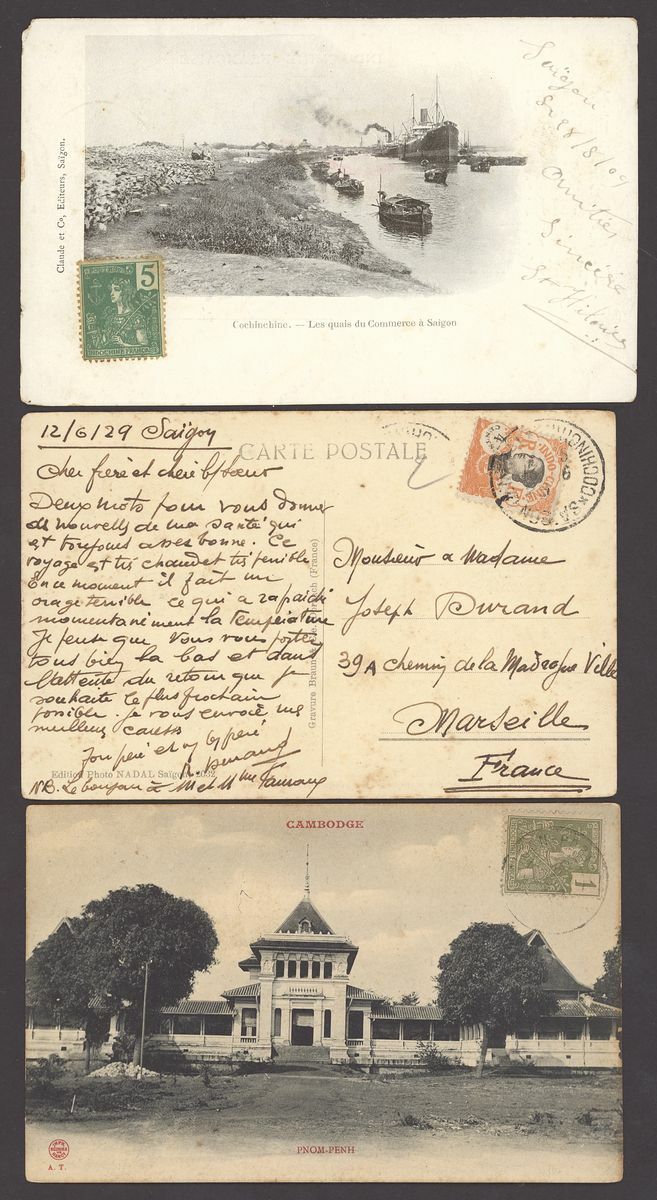 Claude et Co, Editeurs, Saïgon.
Saïgon
28/8/09
Amitiés
Sincère
St Hilaire
5
INDOCHINE FRANÇAISE
Cochinchine. — Les quais du Commerce à Saigon
12/6/29 Saïgon
CARTE POSTALE
Cher frère et chère b/sœur
Deux mots pour vous donner
de nouvelle de ma santé qui
est toujours assez bonne. Ce
voyage est très chaud et très penible
En ce moment il fait un
orage terrible ce qui a rapaichi
momentanément la température
Je pense que vous vous portez
tous bien la bas et dans
l'attente du retour que je
souhaite le plus prochain
possible. je vous envoie mes
meilleurs
Edition Photo NADAL Saïgon 2032
N.B. Le bonjour à M et Mme
Gravure Braun & Cie (France)
INDO-CHINE
COCHINCHINE
Monsieur & Madame
Joseph Durand
39A chemin de la Madrague Ville
Marseille
France
CAMBODGE
1
INDOCHINE FRANÇAISE
PNOM-PENH
A. T.